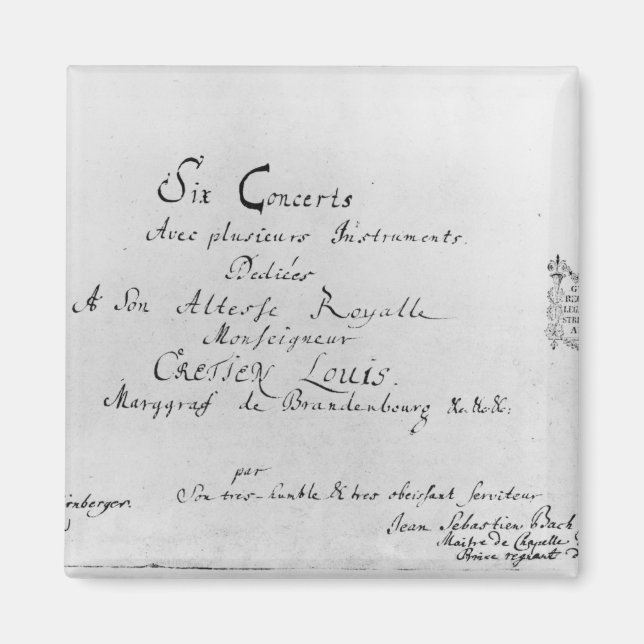 Six Concerts
Avec plusieurs Instruments.
Dediées
A Son Altesse Royalle
Monseigneur
CRETIEN Louis.
Marggraf de Brandenbourg &c:&c:&c:
par
Son tres-humble & tres obeissant serviteur
Jean Sebastien Bach
Maitre de Chapelle
Prince regnant d
rnberger.
G
LEG
STRI
A